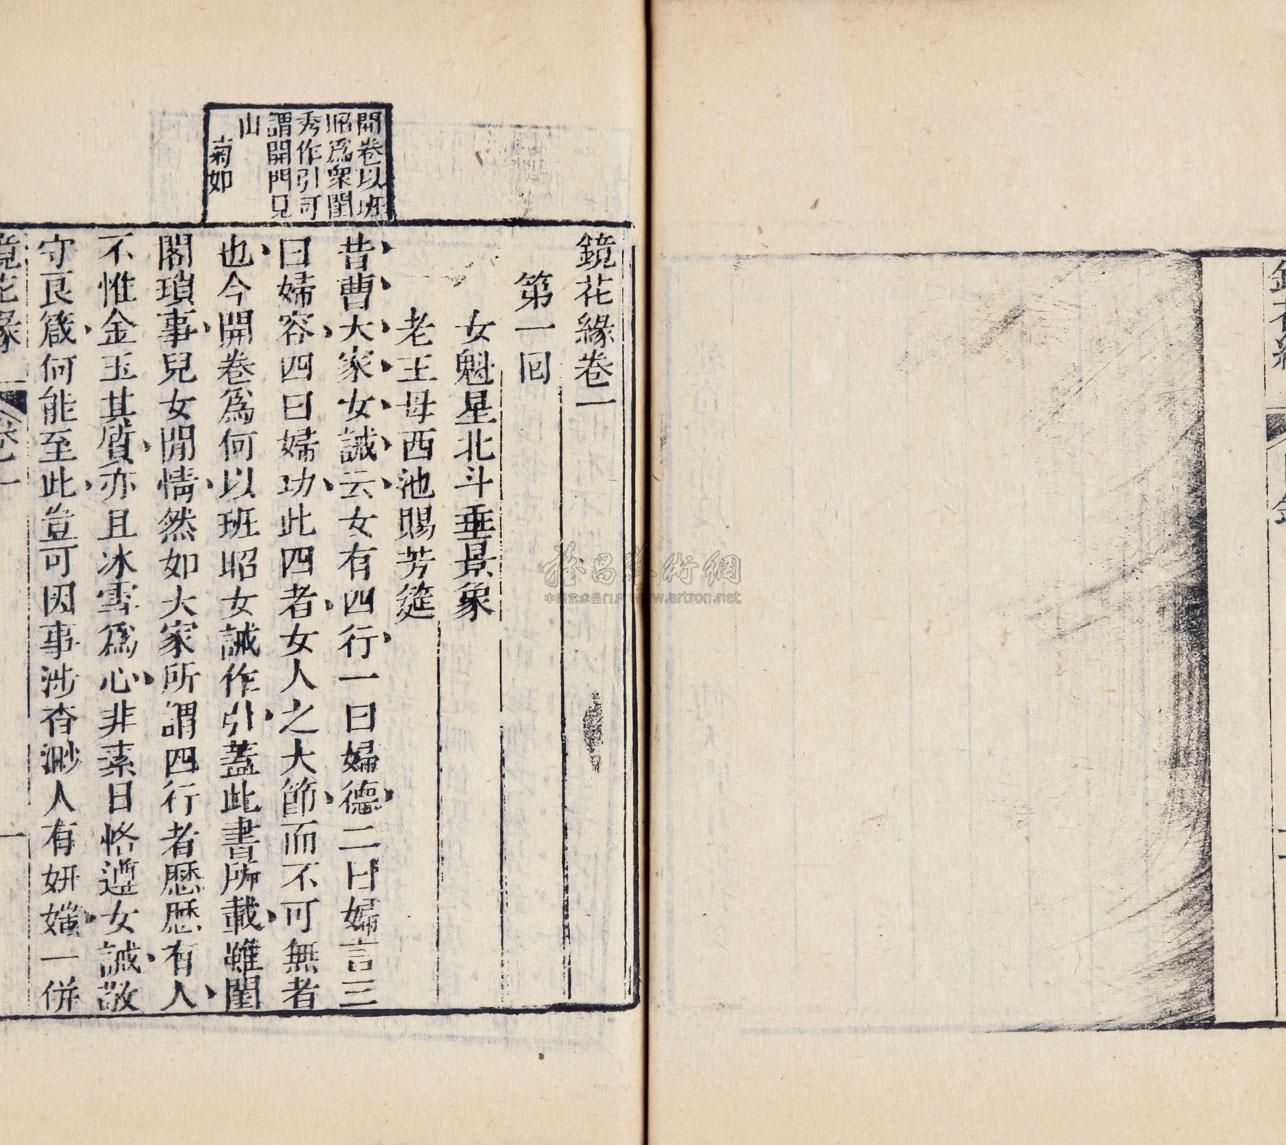 鏡花緣卷一
第一回
女魁星北斗垂景象
老王母西池賜芳筵
昔曹大家女誡云女有四行一曰婦德二曰婦言三
曰婦容四曰婦功此四者女人之大節而不可無者
也今開卷爲何以班昭女誡作引蓋此書所載雖閨
閣瑣事兒女閒情然如大家所謂四行者歷歷有人
不惟金玉其質亦且冰雪爲心非素日恪遵女誡敬
守良箴何能至此豈可因事涉杳渺人有妍媸一併
鏡花緣 卷一 一
開卷以班
昭爲衆閨
秀作引可
謂開門見
山
菊如
雅昌藝術網
www.artron.net